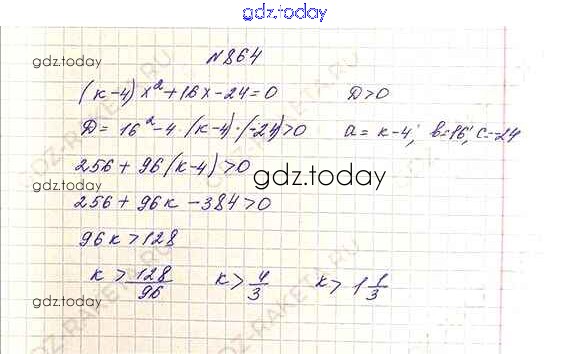 gdz.today
№864
gdz.today
(к-4)x²+16x-24=0 D>0
D=16²-4·(к-4)·(-24)>0 a=к-4; b=16; c=-24
256+96(к-4)>0
gdz.today
gdz.today
256+96к-384>0
96к>128
к>128/96 к>4/3 к>1 1/3
gdz.today